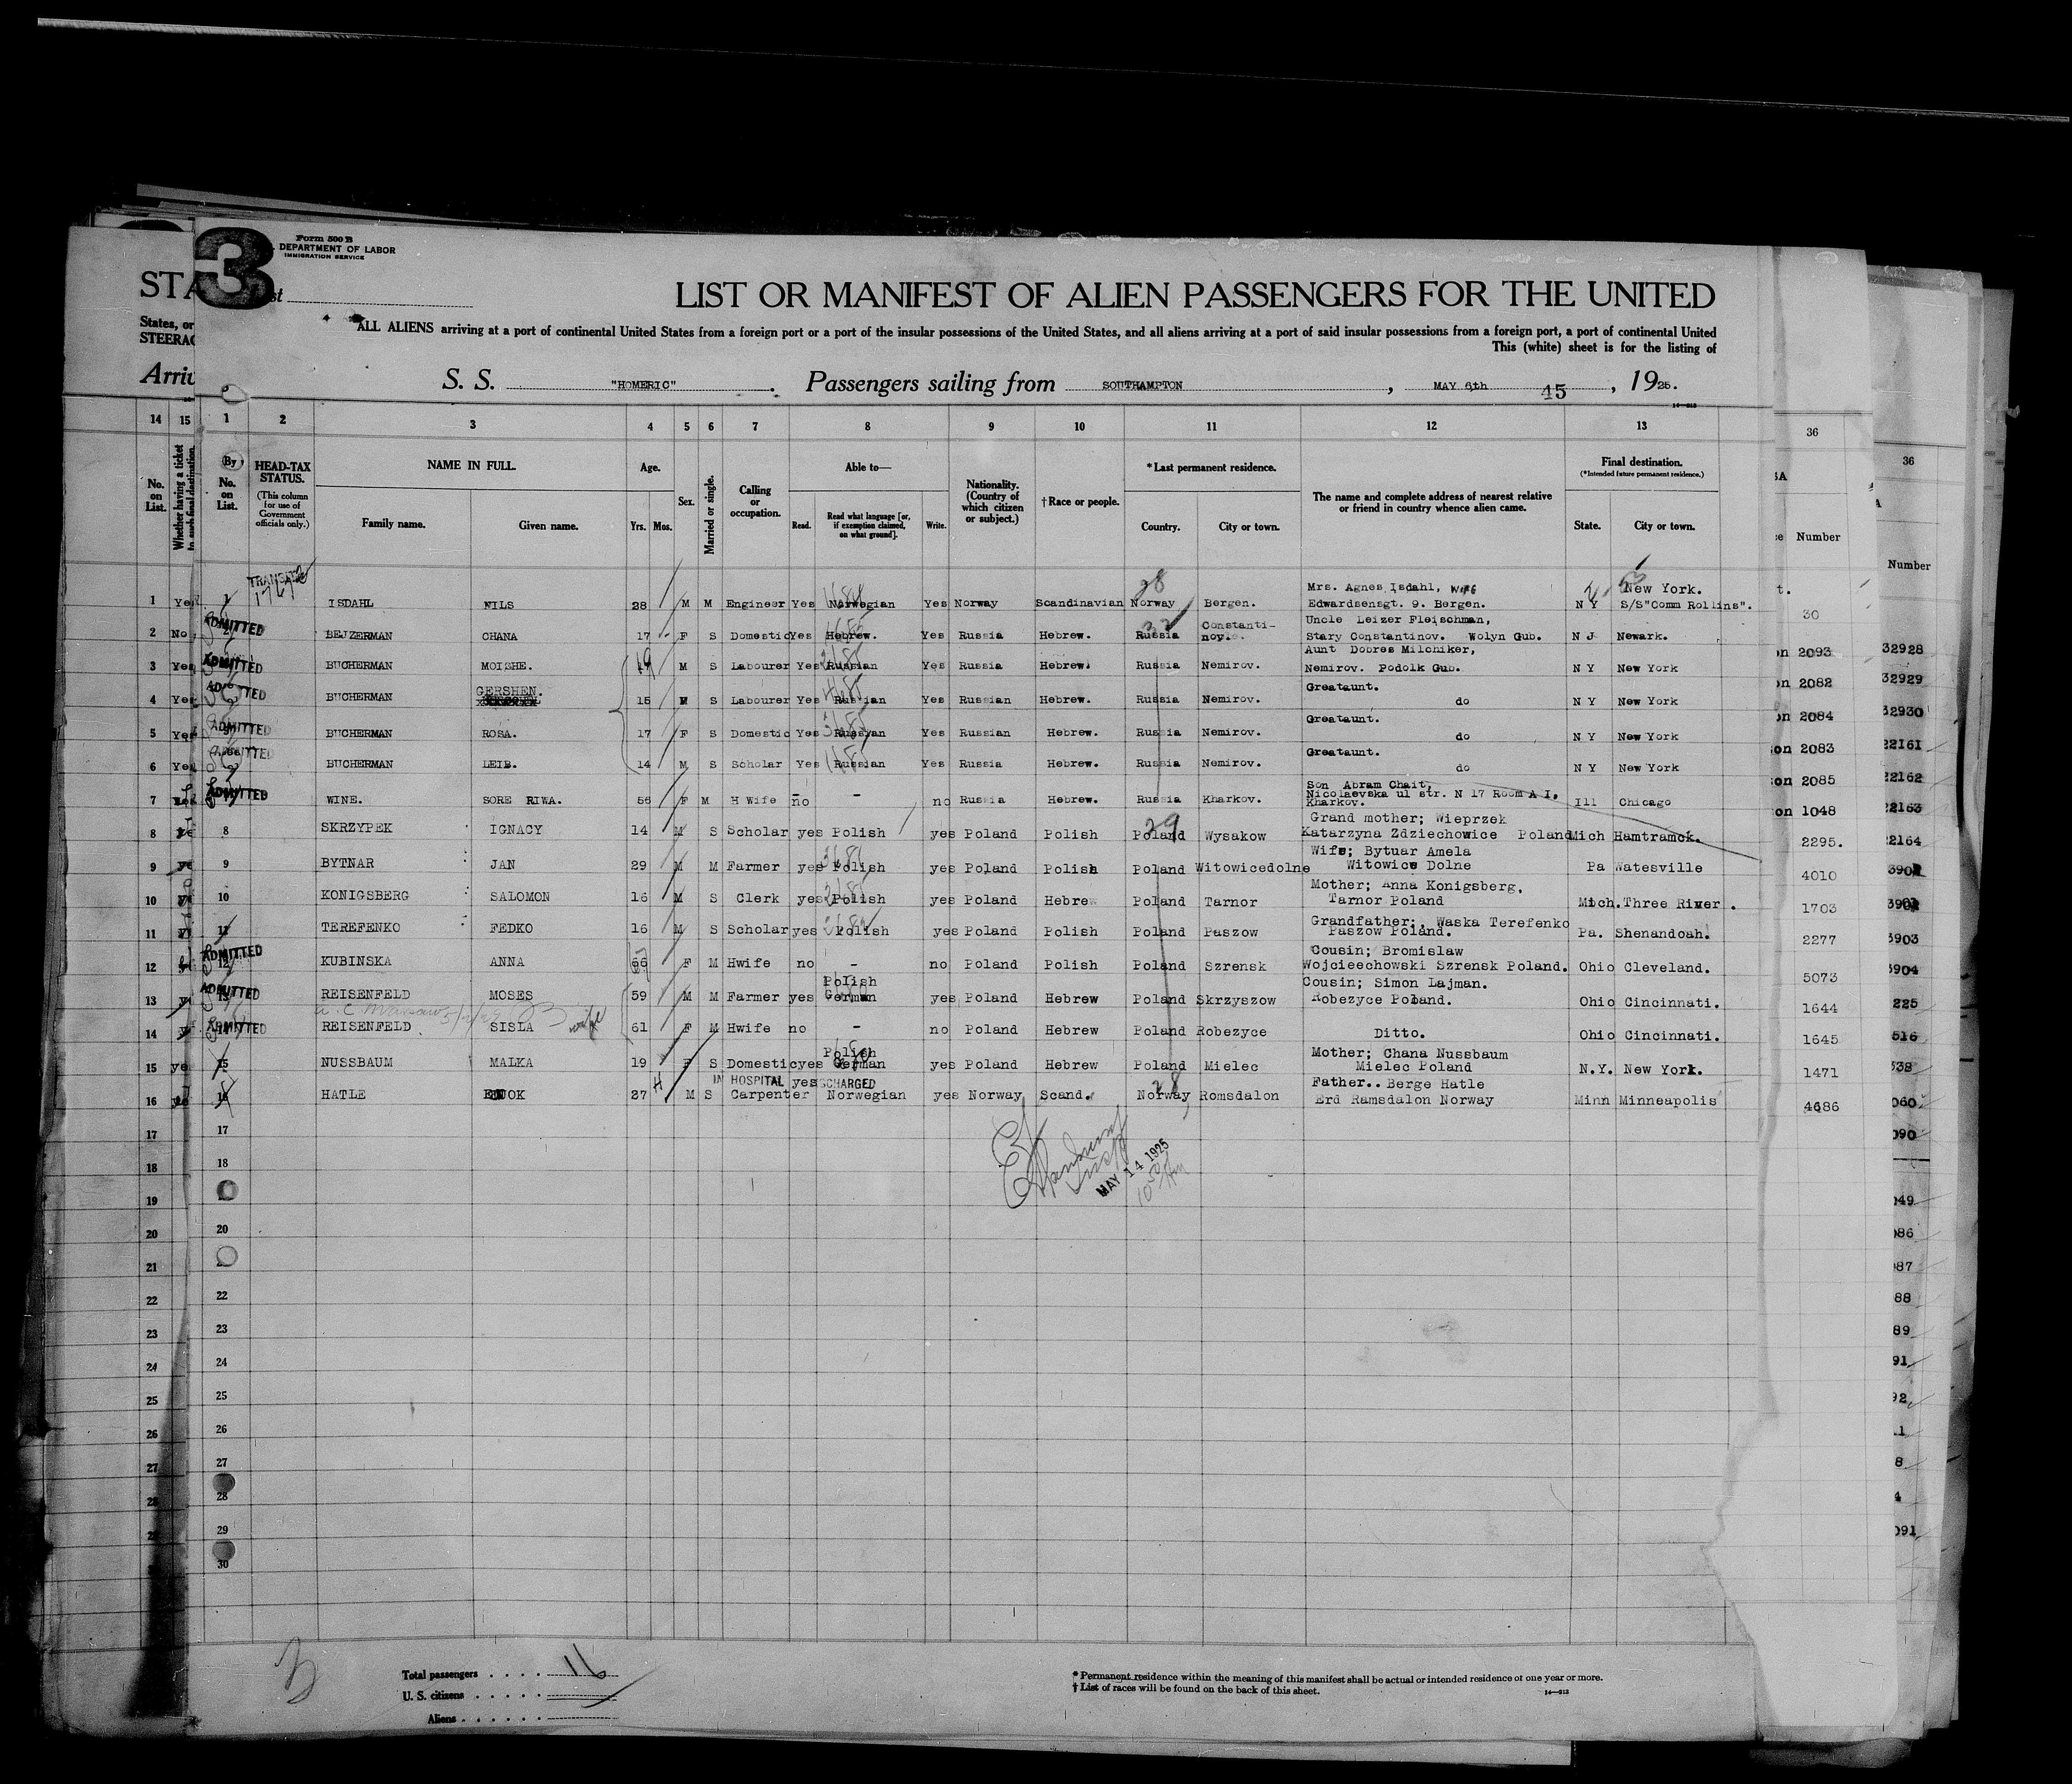 3
Form 500 B
DEPARTMENT OF LABOR
IMMIGRATION SERVICE
STA
LIST OR MANIFEST OF ALIEN PASSENGERS FOR THE UNITED
States, or
STEERAG
ALL ALIENS arriving at a port of continental United States from a foreign port or a port of the insular possessions of the United States, and all aliens arriving at a port of said insular possessions from a foreign port, a port of continental United
This (white) sheet is for the listing of
S. S. "HOMERIC". Passengers sailing from SOUTHAMPTON, MAY 6th 45, 1925.
14 15 1 2 3 4 5 6 7 8 9 10 11 12 13 36 36
No. on List. Whether having a ticket to such final destination. By No. on List. HEAD-TAX STATUS. (This column for use of Government officials only.) NAME IN FULL. Family name. Given name. Age. Yrs. Mos. Sex. Married or single. Calling or occupation. Able to— Read. Read what language [or, if exemption claimed, on what ground]. Write. Nationality. (Country of which citizen or subject.) †Race or people. *Last permanent residence. Country. City or town. The name and complete address of nearest relative or friend in country whence alien came. Final destination. (*Intended future permanent residence.) State. City or town. Number Number
1 ISDAHL NILS 28 M M Engineer Yes Norwegian Yes Norway Scandinavian Norway Bergen. Mrs. Agnes Isdahl, Wife Edwardsensgt. 9. Bergen. N Y New York. S/S"Comm Rollins". 30
2 No ADMITTED BEJZERMAN CHANA 17 F S Domestic Yes Hebrew. Yes Russia Hebrew. Russia Constanti- Uncle Leizer Fleischman, Stary Constantinov. Wolyn Gub. N J Newark. 2093 32928
3 Yes ADMITTED BUCHERMAN MOISHE. 19 M S Labourer Yes Russian Yes Russia Hebrew. Russia Nemirov. Aunt Dobres Milchiker, Nemirov. Podolk Gub. N Y New York 2082 32929
4 Yes ADMITTED BUCHERMAN GERSHEN. 15 S Labourer Yes Russian Yes Russian Hebrew. Russia Nemirov. Greataunt. do N Y New York 2084 32930
5 Yes ADMITTED BUCHERMAN ROSA. 17 F S Domestic Yes Russian Yes Russian Hebrew. Russia Nemirov. Greataunt. do N Y New York 2083 22161
6 Yes ADMITTED BUCHERMAN LEIB. 14 M S Scholar Yes Russian Yes Russia Hebrew. Russia Nemirov. Greataunt. do N Y New York 2085 22162
7 ADMITTED WINE. SORE RIWA. 56 F M H Wife no - no Russia Hebrew. Russia Kharkov. Son Abram Chait, Nicolaevska ul str. N 17 Room A I, Kharkov. Ill Chicago 1048 22163
8 8 SKRZYPEK IGNACY 14 M S Scholar yes Polish yes Poland Polish Poland Wysakow Grand mother; Wieprzek Katarzyna Zdziechowice Poland Mich Hamtramck. 2295. 22164
9 9 BYTNAR JAN 29 M M Farmer yes Polish yes Poland Polish Poland Witowicedolne Wife; Bytuar Amela Witowice Dolne Pa Watesville 4010
10 10 KONIGSBERG SALOMON 16 M S Clerk yes Polish yes Poland Hebrew Poland Tarnor Mother; Anna Konigsberg, Tarnor Poland Mich. Three River. 1703
11 11 TEREFENKO FEDKO 16 M S Scholar yes Polish yes Poland Polish Poland Paszow Grandfather; Waska Terefenko Paszow Poland. Pa. Shenandoah. 2277 3903
12 ADMITTED KUBINSKA ANNA 66 F M Hwife no - no Poland Polish Poland Szrensk Cousin; Bromislaw Wojcieechowski Szrensk Poland. Ohio Cleveland. 5073 3904
13 ADMITTED REISENFELD MOSES 59 M M Farmer yes Polish German yes Poland Hebrew Poland Skrzyszow Cousin; Simon Lajman. Robezyce Poland. Ohio Cincinnati. 1644 225
14 ADMITTED REISENFELD SISLA wife 61 F M Hwife no - no Poland Hebrew Poland Robezyce Ditto. Ohio Cincinnati. 1645 516
15 ye 15 NUSSBAUM MALKA 19 F S Domestic yes Polish German yes Poland Hebrew Poland Mielec Mother; Chana Nussbaum Mielec Poland N.Y. New York. 1471 538
IN HOSPITAL DISCHARGED
16 16 HATLE 27 M S Carpenter yes Norwegian yes Norway Scand. Norway Romsdalon Father.. Berge Hatle Erd Ramsdalon Norway Minn Minneapolis 4686 060
17 17 090
18 18
MAY 14 1925
19 049
20 20 086
21 087
22 22 88
23 23 89
24 24 91
25 25 92
26 26
27 27
28 28
29 091
30
Total passengers . . . . 16
U. S. citizens . . . . .
Aliens . . . . . .
* Permanent residence within the meaning of this manifest shall be actual or intended residence of one year or more.
† List of races will be found on the back of this sheet.